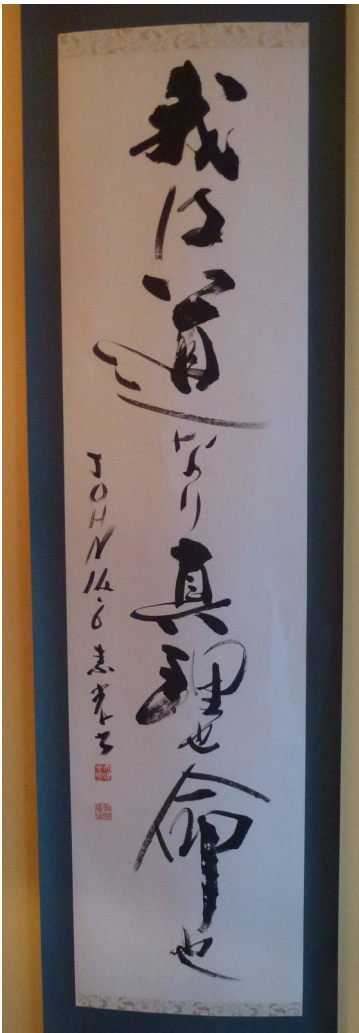 我は道なり真理也命也
JOHN 14・6